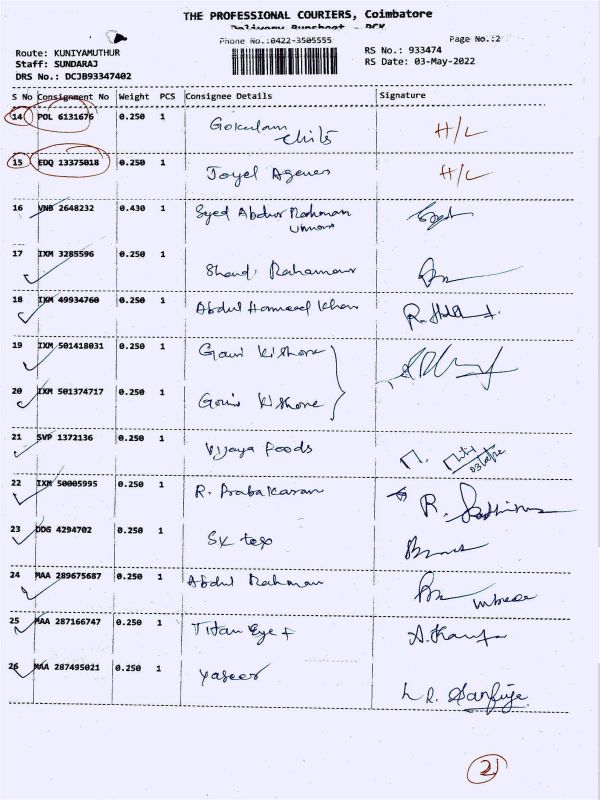 THE PROFESSIONAL COURIERS, Coimbatore
Delivery Runsheet - DCK
Phone No.:0422-3505555 Page No.:2
Route: KUNIYAMUTHUR RS No.: 933474
Staff: SUNDARAJ RS Date: 03-May-2022
DRS No.: DCJB93347402
S No Consignment No Weight PCS Consignee Details Signature
14 POL 6131676 0.250 1 Gokulam chits H/L
15 EDQ 13375018 0.250 1 Joyel H/L
16 VNB 2648232 0.430 1 Syed Abdur Rahman
17 IXM 3285596 0.250 1
18 IXM 49934760 0.250 1 Abdul Hameed Khan
19 IXM 501418031 0.250 1 Gowri Kishore
20 IXM 501374717 0.250 1 Gowri Kishore
21 SVP 1372136 0.250 1 Vijaya Foods
22 IXM 50005995 0.250 1 R. Prabakaran R.
23 DDG 4294702 0.250 1 SK tex
24 MAA 289675687 0.250 1 Abdul Rahman
25 MAA 287166747 0.250 1 Titan Eye +
26 MAA 287495021 0.250 1 Yaseer
2